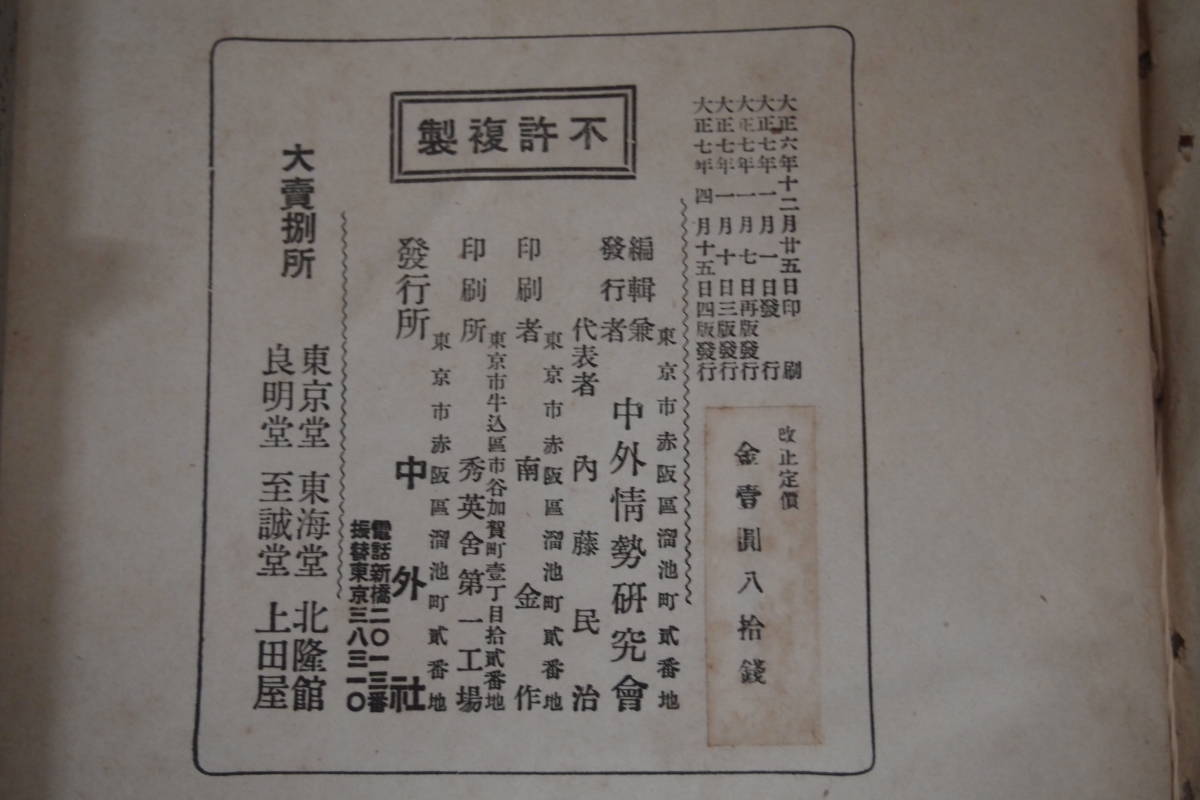 大正六年十二月廿五日印刷
大正七年一月一日發行
大正七年一月七日再版發行
大正七年一月十日三版發行
大正七年四月十五日四版發行
改止定價
金壹圓八拾錢
不許複製
東京市赤阪區溜池町貳番地
編輯兼
發行者
中外情勢研究會
代表者 內藤民治
東京市赤阪區溜池町貳番地
印刷者 南金作
東京市牛込區市谷加賀町壹丁目拾貳番地
印刷所 秀英舍第一工場
東京市赤阪區溜池町貳番地
發行所 中外社
電話新橋二〇一三番
振替東京三八三一〇
大賣捌所
東京堂 東海堂 北隆館
良明堂 至誠堂 上田屋